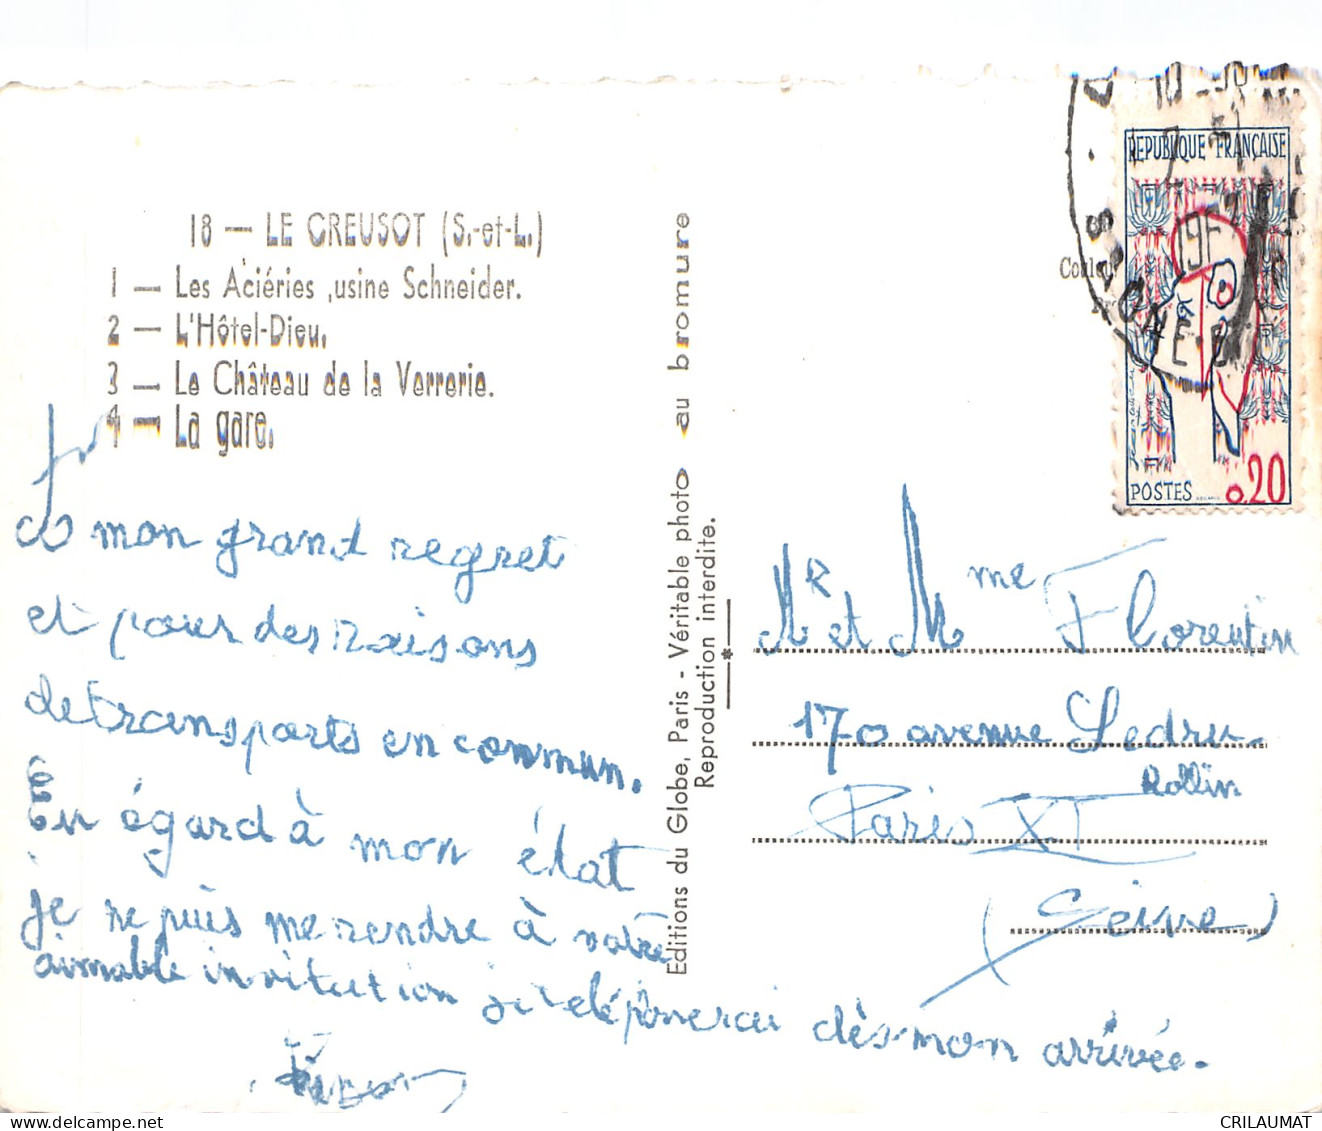 18 — LE CREUSOT (S.-et-L.)
1 — Les Aciéries ,usine Schneider.
2 — L'Hôtel-Dieu.
3 — Le Château de la Verrerie.
4 — La gare.
mon grand regret
et pour des raisons
de transports en commun.
En égard à mon état
je ne puis me rendre à votre
aimable invitation je téléphonerai dès mon arrivée.
Editions du Globe, Paris - Véritable photo au bromure
Reproduction interdite.
REPUBLIQUE FRANÇAISE
POSTES 0,20
SAONE-
Mr et Mme Florentin
170 avenue Ledru-
Rollin
Paris XI
(Seine)
CRILAUMAT